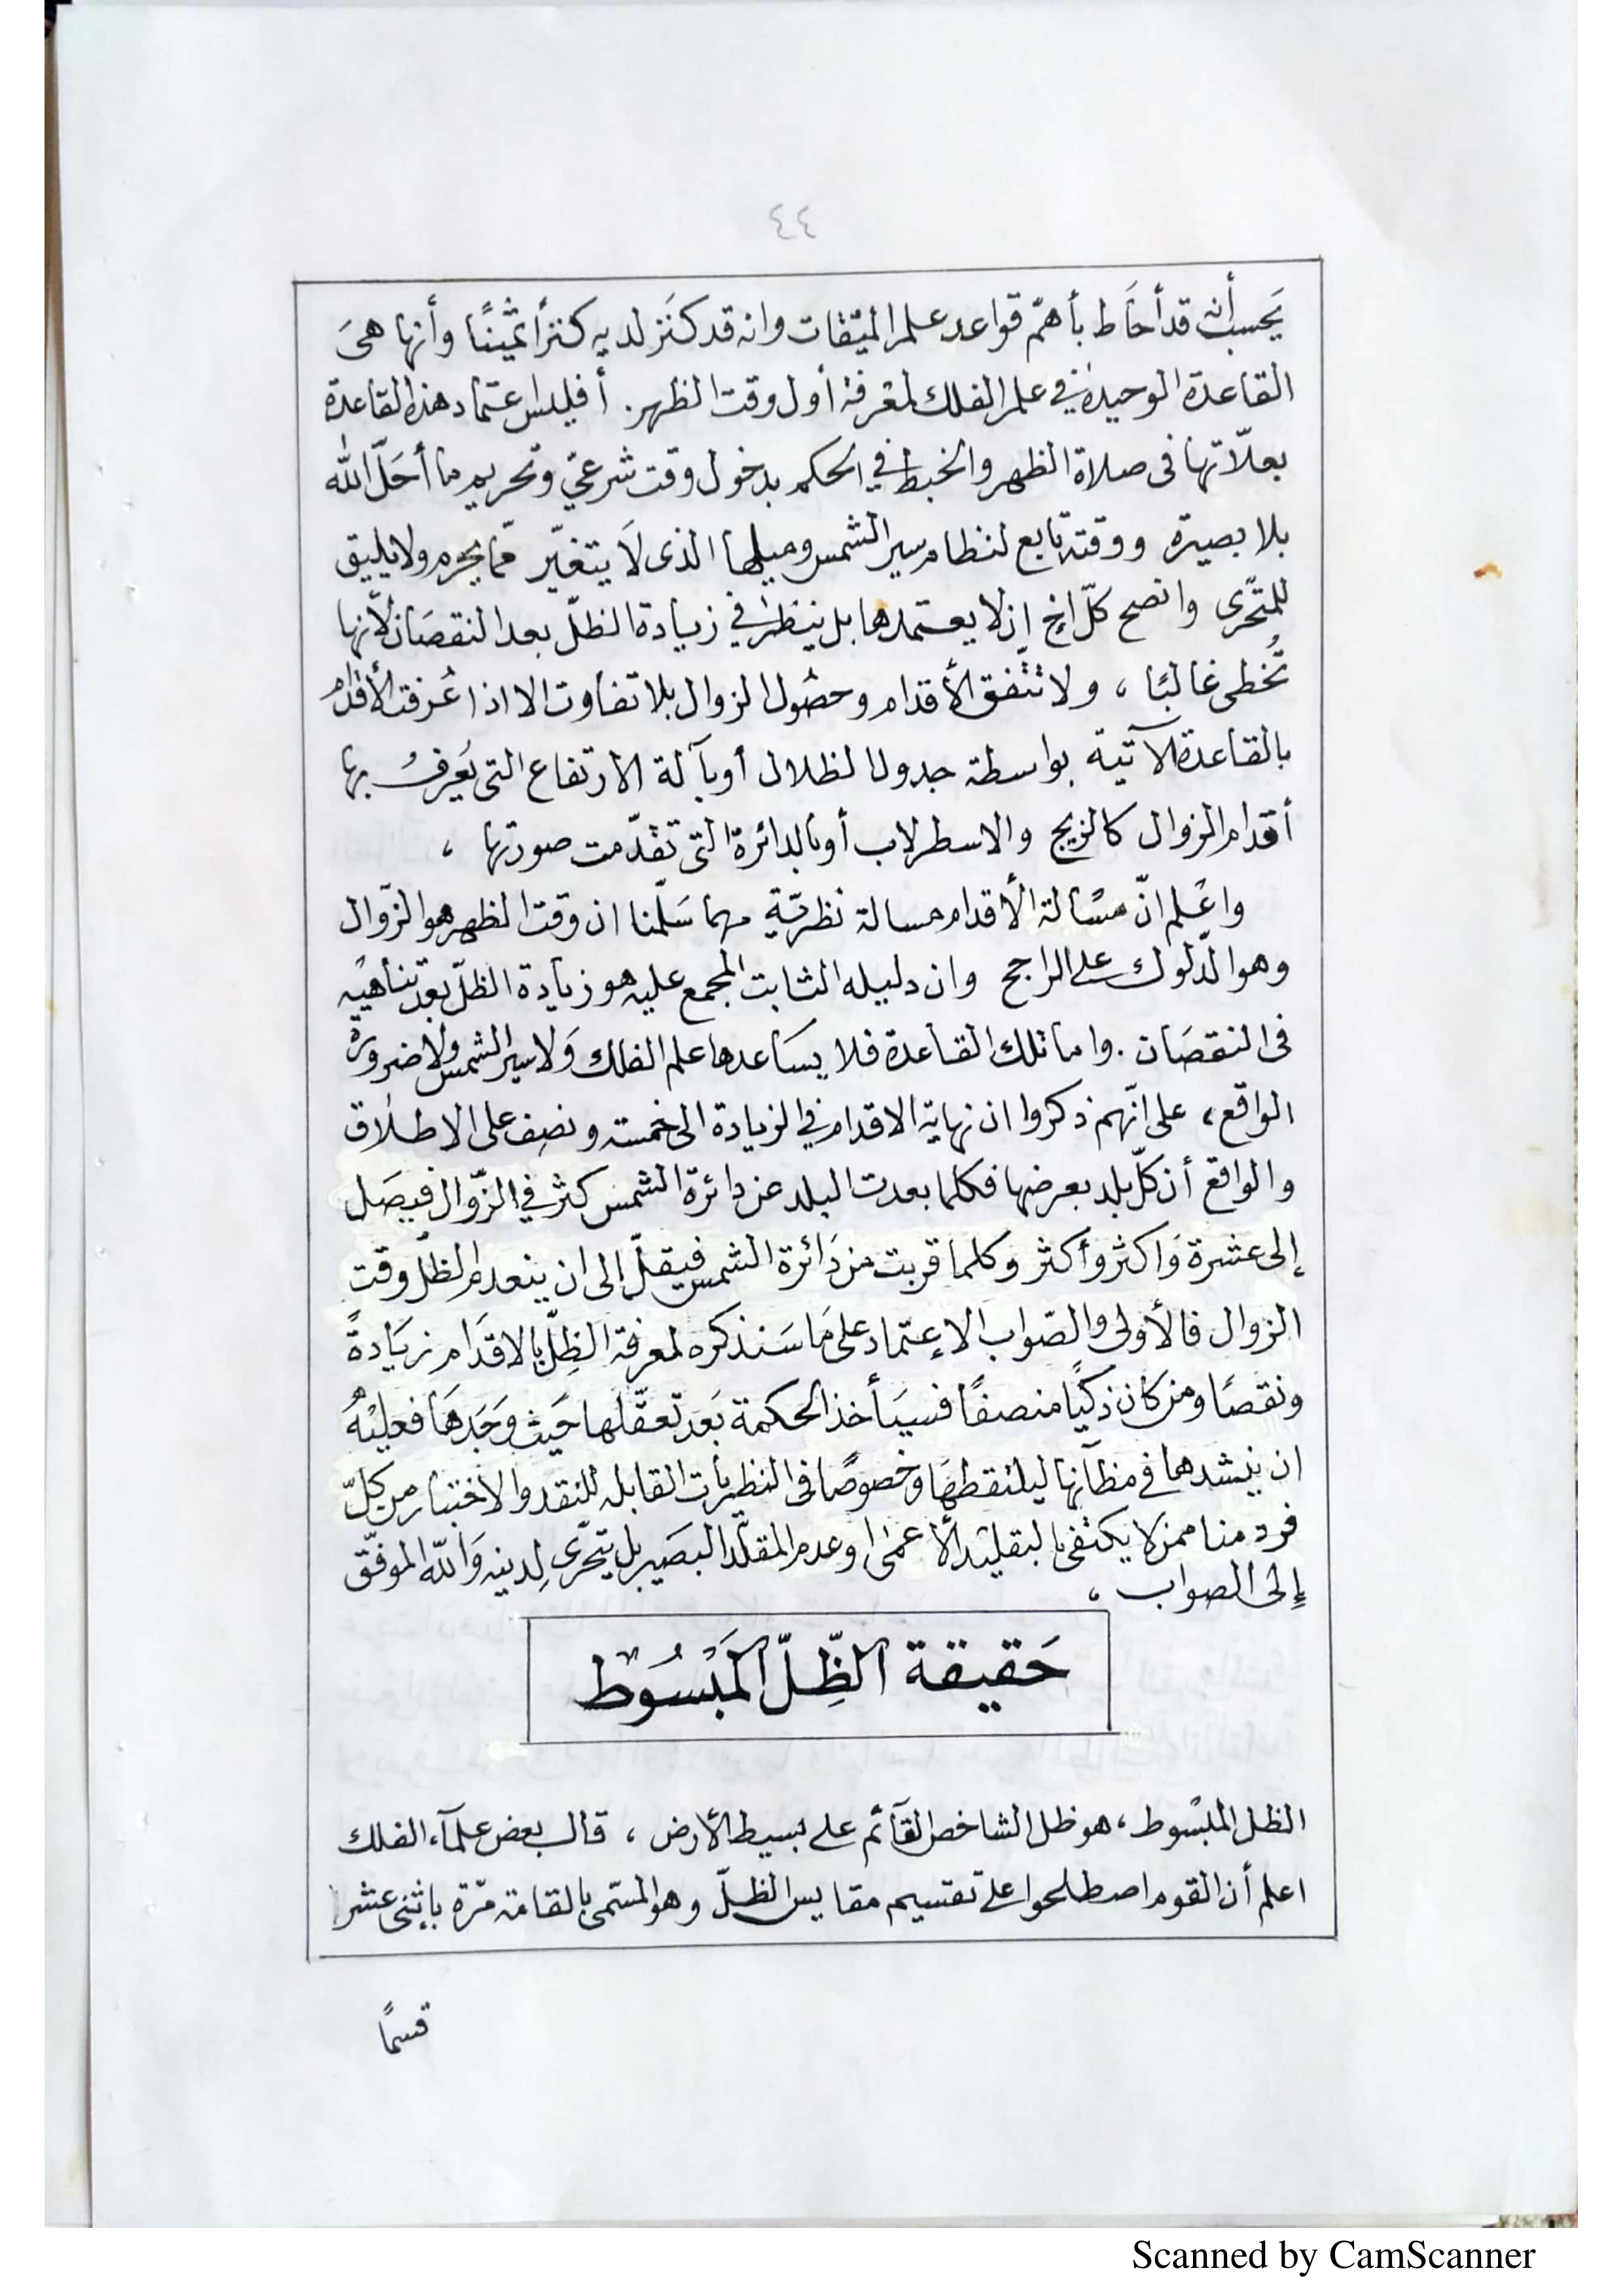 ٤٤
يَحسب أنه قد أحَاط بأهمّ قواعد علم الميّقات وانه قد كنَز لديه كنزاً ثمينًا وأنها هىَ
القاعدة الوحيدة في علم الفلك لمعرفة أول وقت الظهر. أفليس اعتماد هذه القاعدة
بعلاّتها فى صلاة الظهر والخبط في الحكم بدخول وقت شرعيّ وتحريم ما أحَلّ الله
بلا بصيرة ووقته تابع لنظام سير الشمس وميلها الذى لاَ يتغيّر ممّا يحرم ولا يليق
للمتحّرى وانصح كلّ اخ ان لا يعتمدها بل ينظر في زيادة الظلّ بعد النقصَان لأنها
تُخطى غالبًا ، ولا تتّفق الأقدام وحصُول الزوال بلا تفاوت الا اذا عُرفت الأقدام
بالقاعدة الآتية بواسطة جدول الظلال أو بآلة الارتفاع التى يَعرفُ بها
أقدام الزوال كالزيج والاسطرلاب أو بالدائرة التى تقدّمت صورتها ،
واعْلم انّ مسْألة الأقدام مسالة نظريّة مهما سَلّمنا ان وقت الظهر هو الزّوال
وهو الدّلوك على الراجح وان دليله الثابت المجمع عليه هو زيادة الظلّ بعد تناهيْه
فى النقصَان . واما تلك القاعدة فلا يسَاعدها علم الفلك وَلا سير الشمس ولا ضرورة
الواقع ، على انّهم ذكروا ان نهاية الاقدام في الزيادة الى خمسة ونصف على الاطلاق
والواقع أن كلّ بلد بعرضها فكلما بعدت البلد عن دائرة الشمس كثر في الزّوال فيصَل
إلى عشرة وَاكثر وأكثر وكلما قربت من دَائرة الشمس فيقلّ إلى ان ينعدم الظلّ وقت
الزوال فالأولى والصّواب الإعتماد على مَا سَنذكره لمعرفة الظِلّ بالاقدَام زيَادةً
ونقصًا ومن كان ذكيًا منصفًا فسيَأخذ الحكمة بَعد تعقّلها حَيث وَجَدهَا فعليْهُ
ان ينشدها في مظآنها ليلتقطهَا وخصوصًا فى النظريات القابلة للنقد والاختبار من كلّ
فرد منا ممن لا يكتفى بالتقليد الأعمىٰ او عدم المقلّد البصَير بل يتحّرى لِدينه وَالله الموفّق
إلى الصواب ،
حَقيقة الظِّلّ المَبْسُوط
الظل المبْسُوط ، هو ظل الشاخص القآئم على بسيط الأرض ، قال بعض علمآء الفلك
اعلم أن القوم اصطلحوا على تقسيم مقاييس الظلّ وهو المسّمى بالقامة مّرة باثنى عشر
قسمًا
Scanned by CamScanner